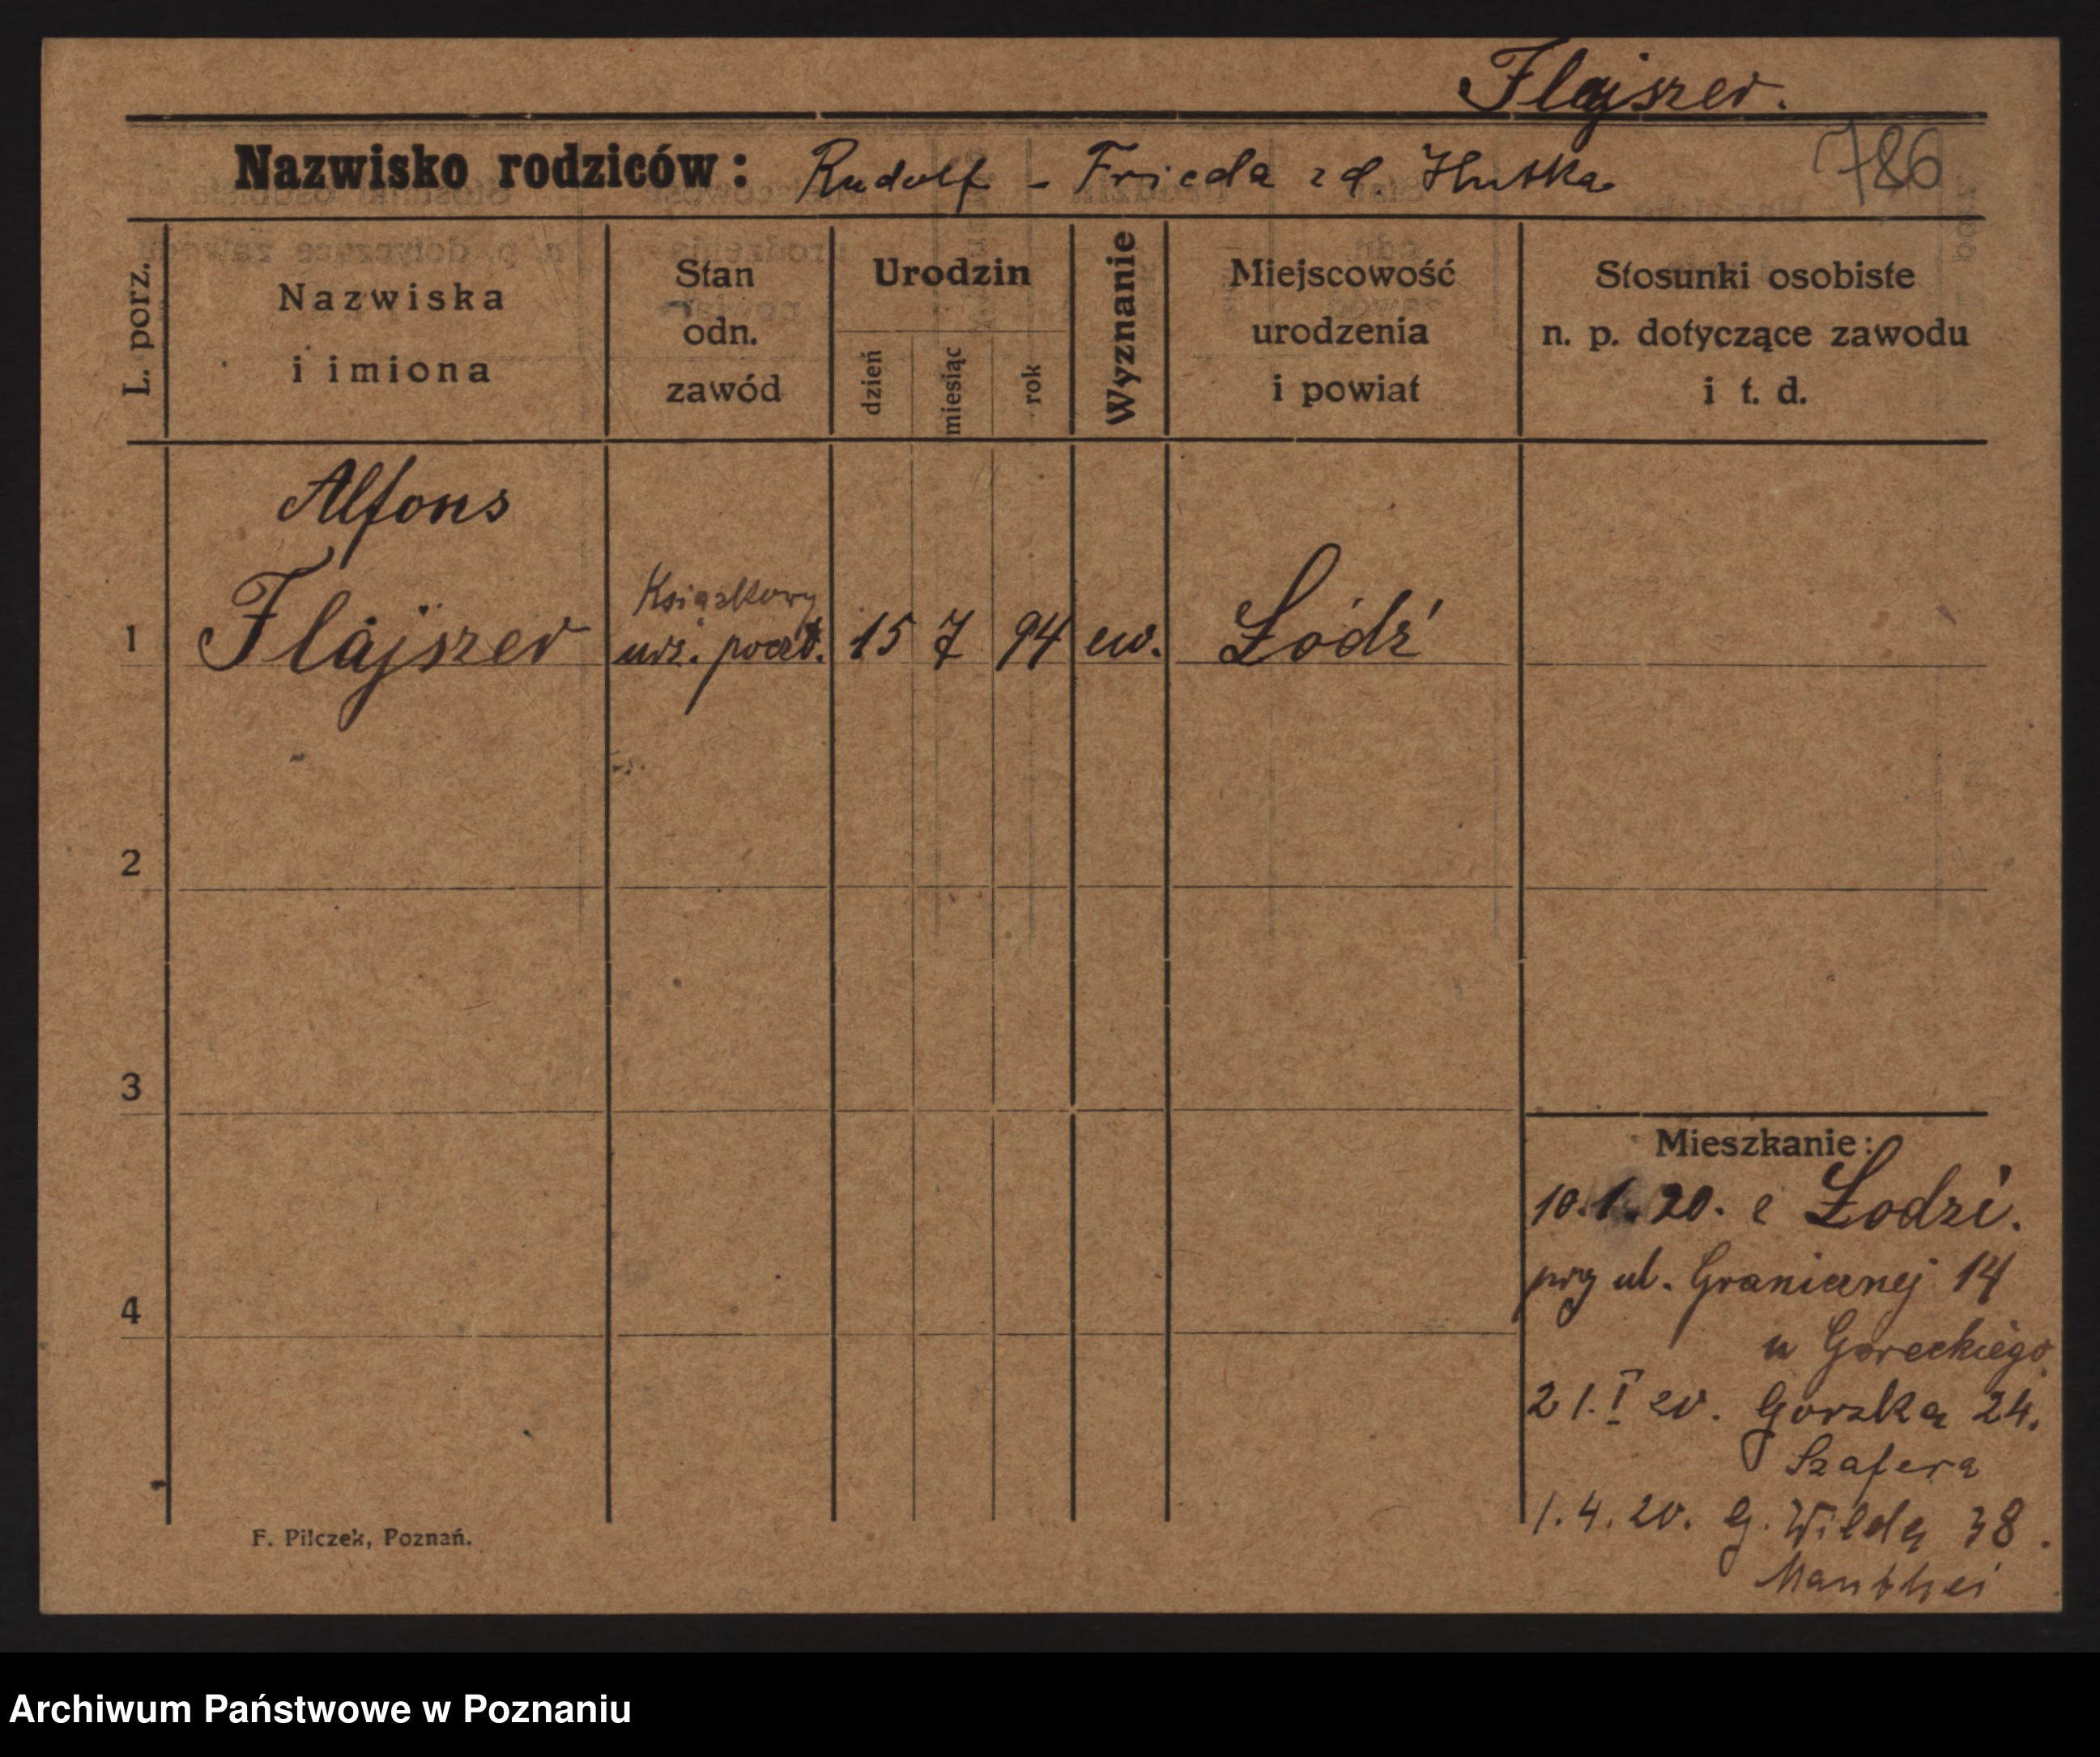 Flajszer.
Nazwisko rodziców: Rudolf - Frieda zd. Hutka
786
L. porz.
Nazwiska
i imiona
Stan
odn.
zawód
Urodzin
dzień
miesiąc
rok
Wyznanie
Miejscowość
urodzenia
i powiat
Stosunki osobiste
n. p. dotyczące zawodu
i t. d.
Alfons
1 Flajszer
Książkowy
urz. poczt.
15 7 94 ew. Łódź
2
3
4
Mieszkanie:
10.1.20. z Łodzi.
przy ul. Granicznej 14
u Goreckiego
21.I 20. Gorzka 24.
Szafera
1.4.20. G. Wilda 38.
Manthei
F. Pilczek, Poznań.
Archiwum Państwowe w Poznaniu